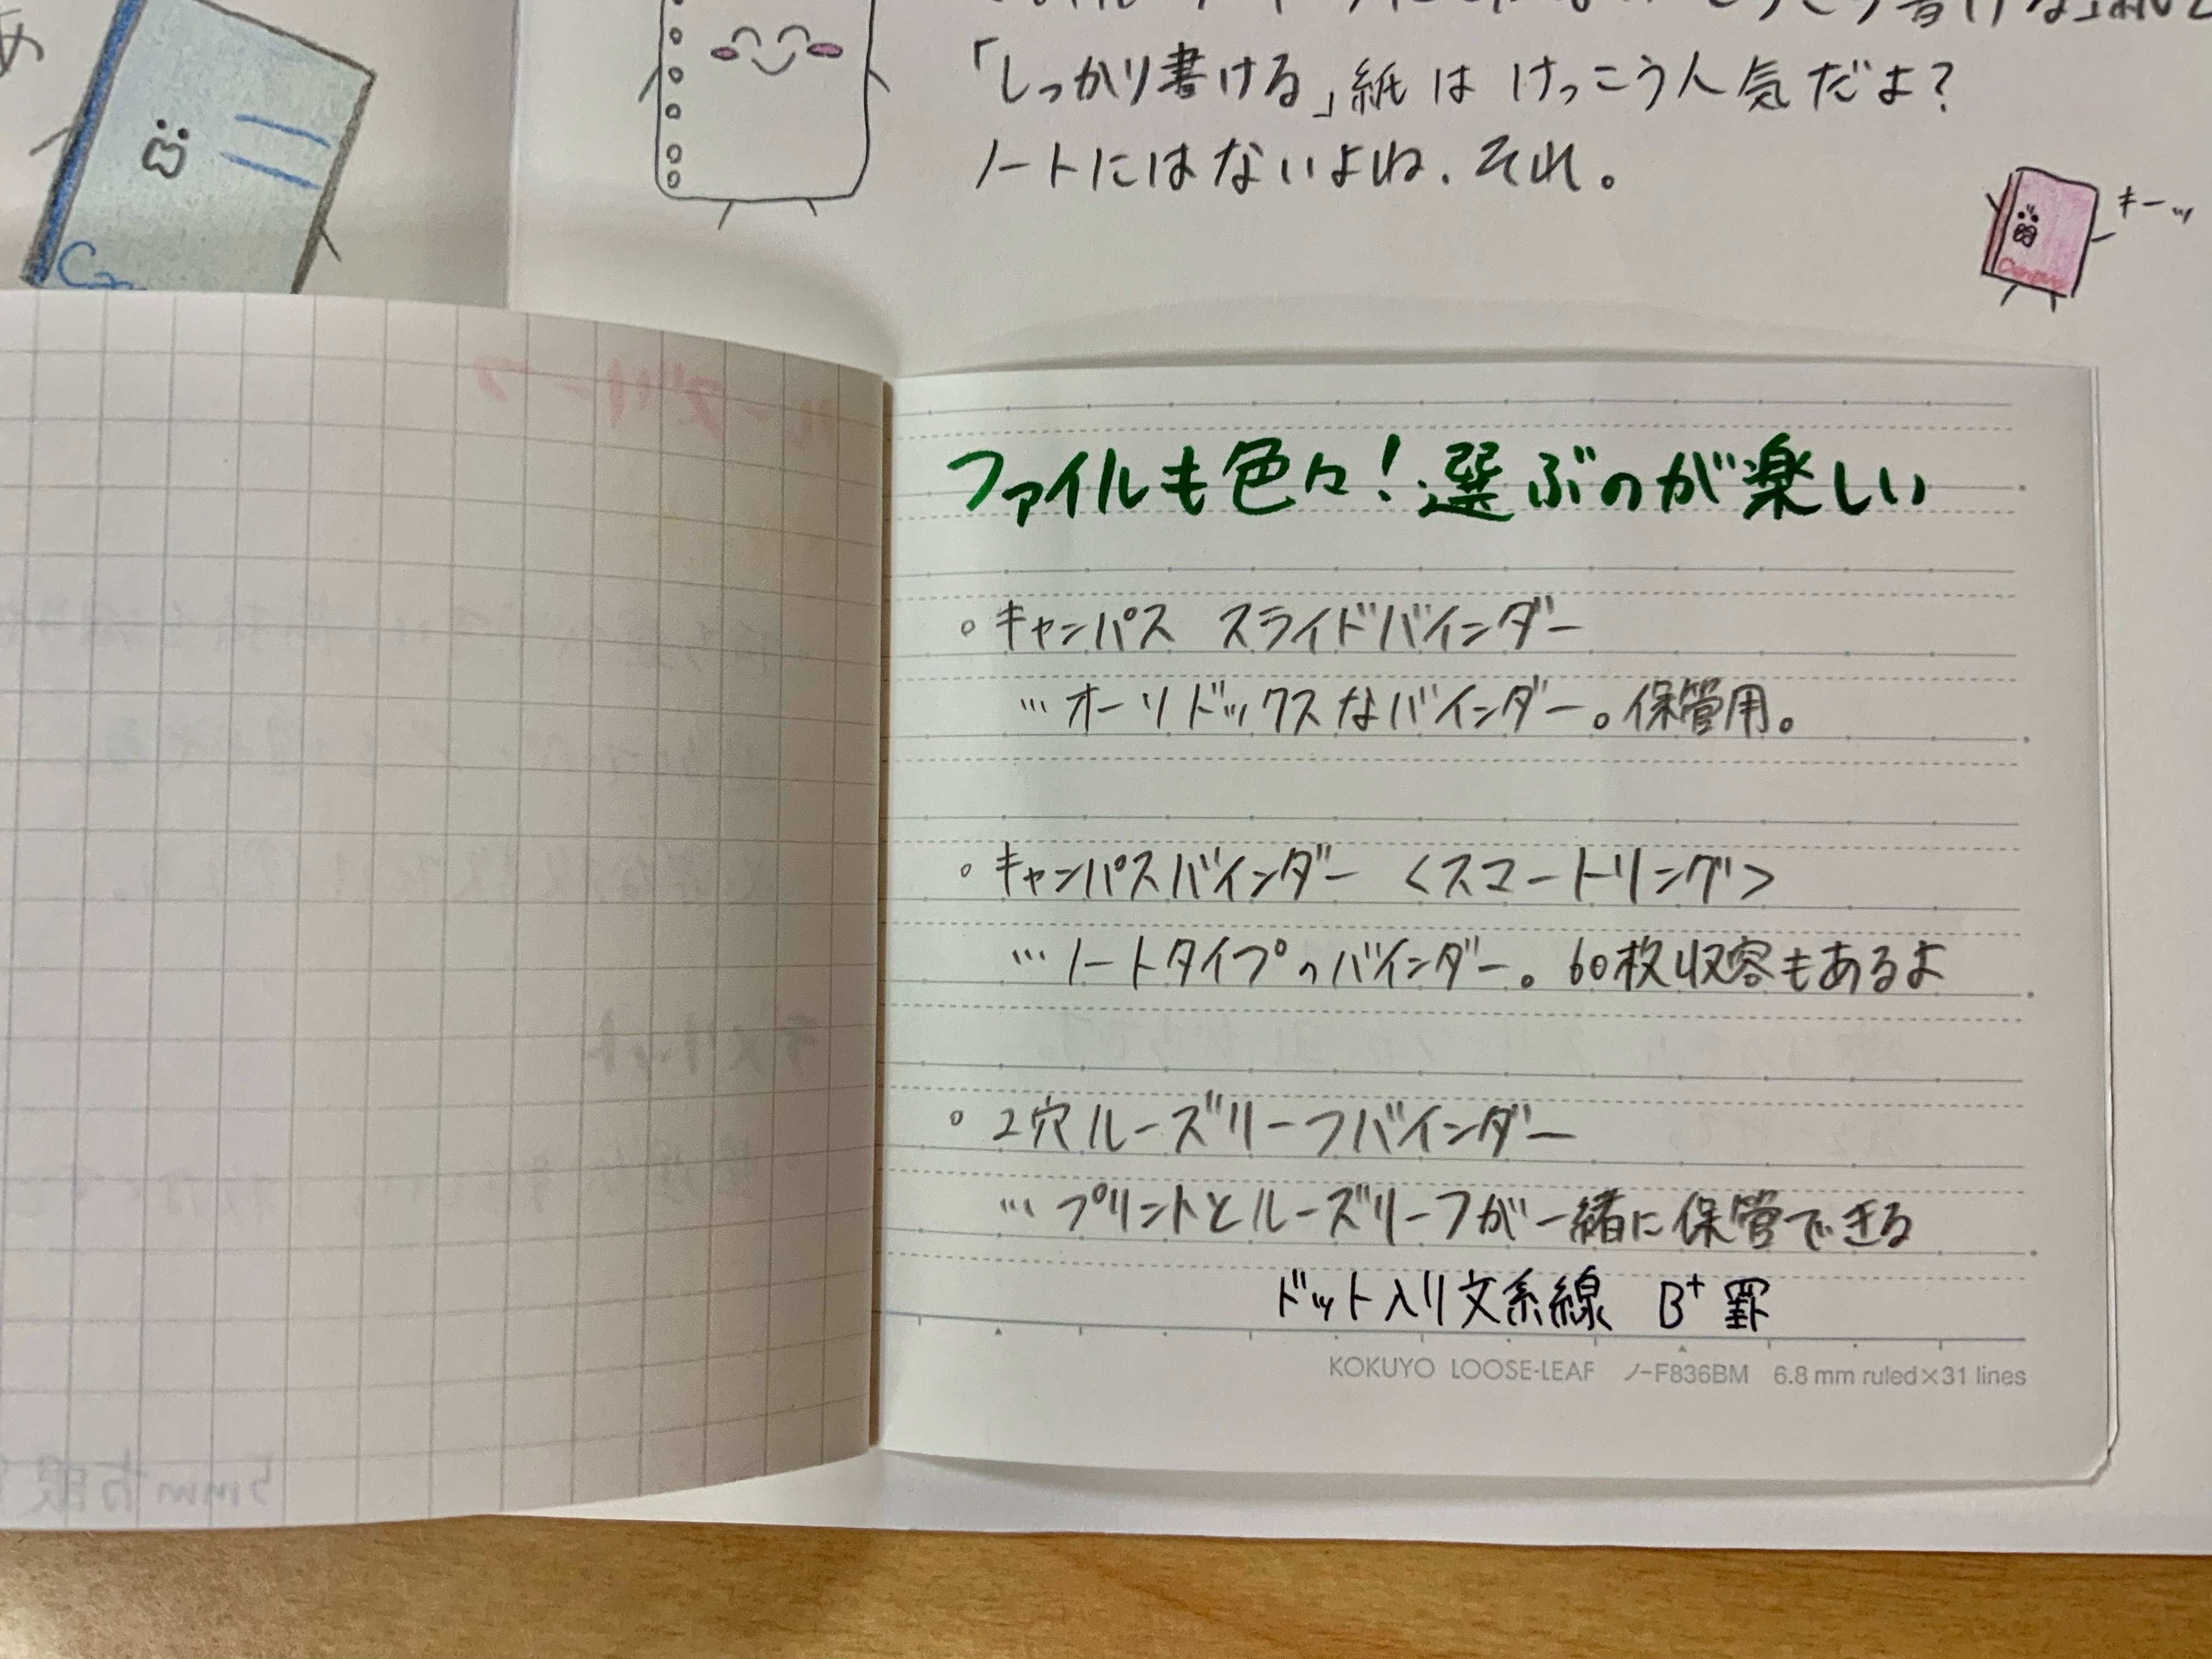 「しっかり書ける」紙は けっこう人気だよ?
ノートにはないよね、それ。
キーッ
Campus
ファイルも色々!選ぶのが楽しい
。キャンパス スライドバインダー
…オーソドックスなバインダー。保管用。
。キャンパスバインダー <スマートリング>
…ノートタイプのバインダー。60枚収容もあるよ
。2穴ルーズリーフバインダー
…プリントとルーズリーフが一緒に保管できる
ドット入り文系線 B+罫
KOKUYO LOOSE-LEAF ノ-F836BM 6.8 mm ruled×31 lines
ルーズリーフ
デメリット
5mm方眼